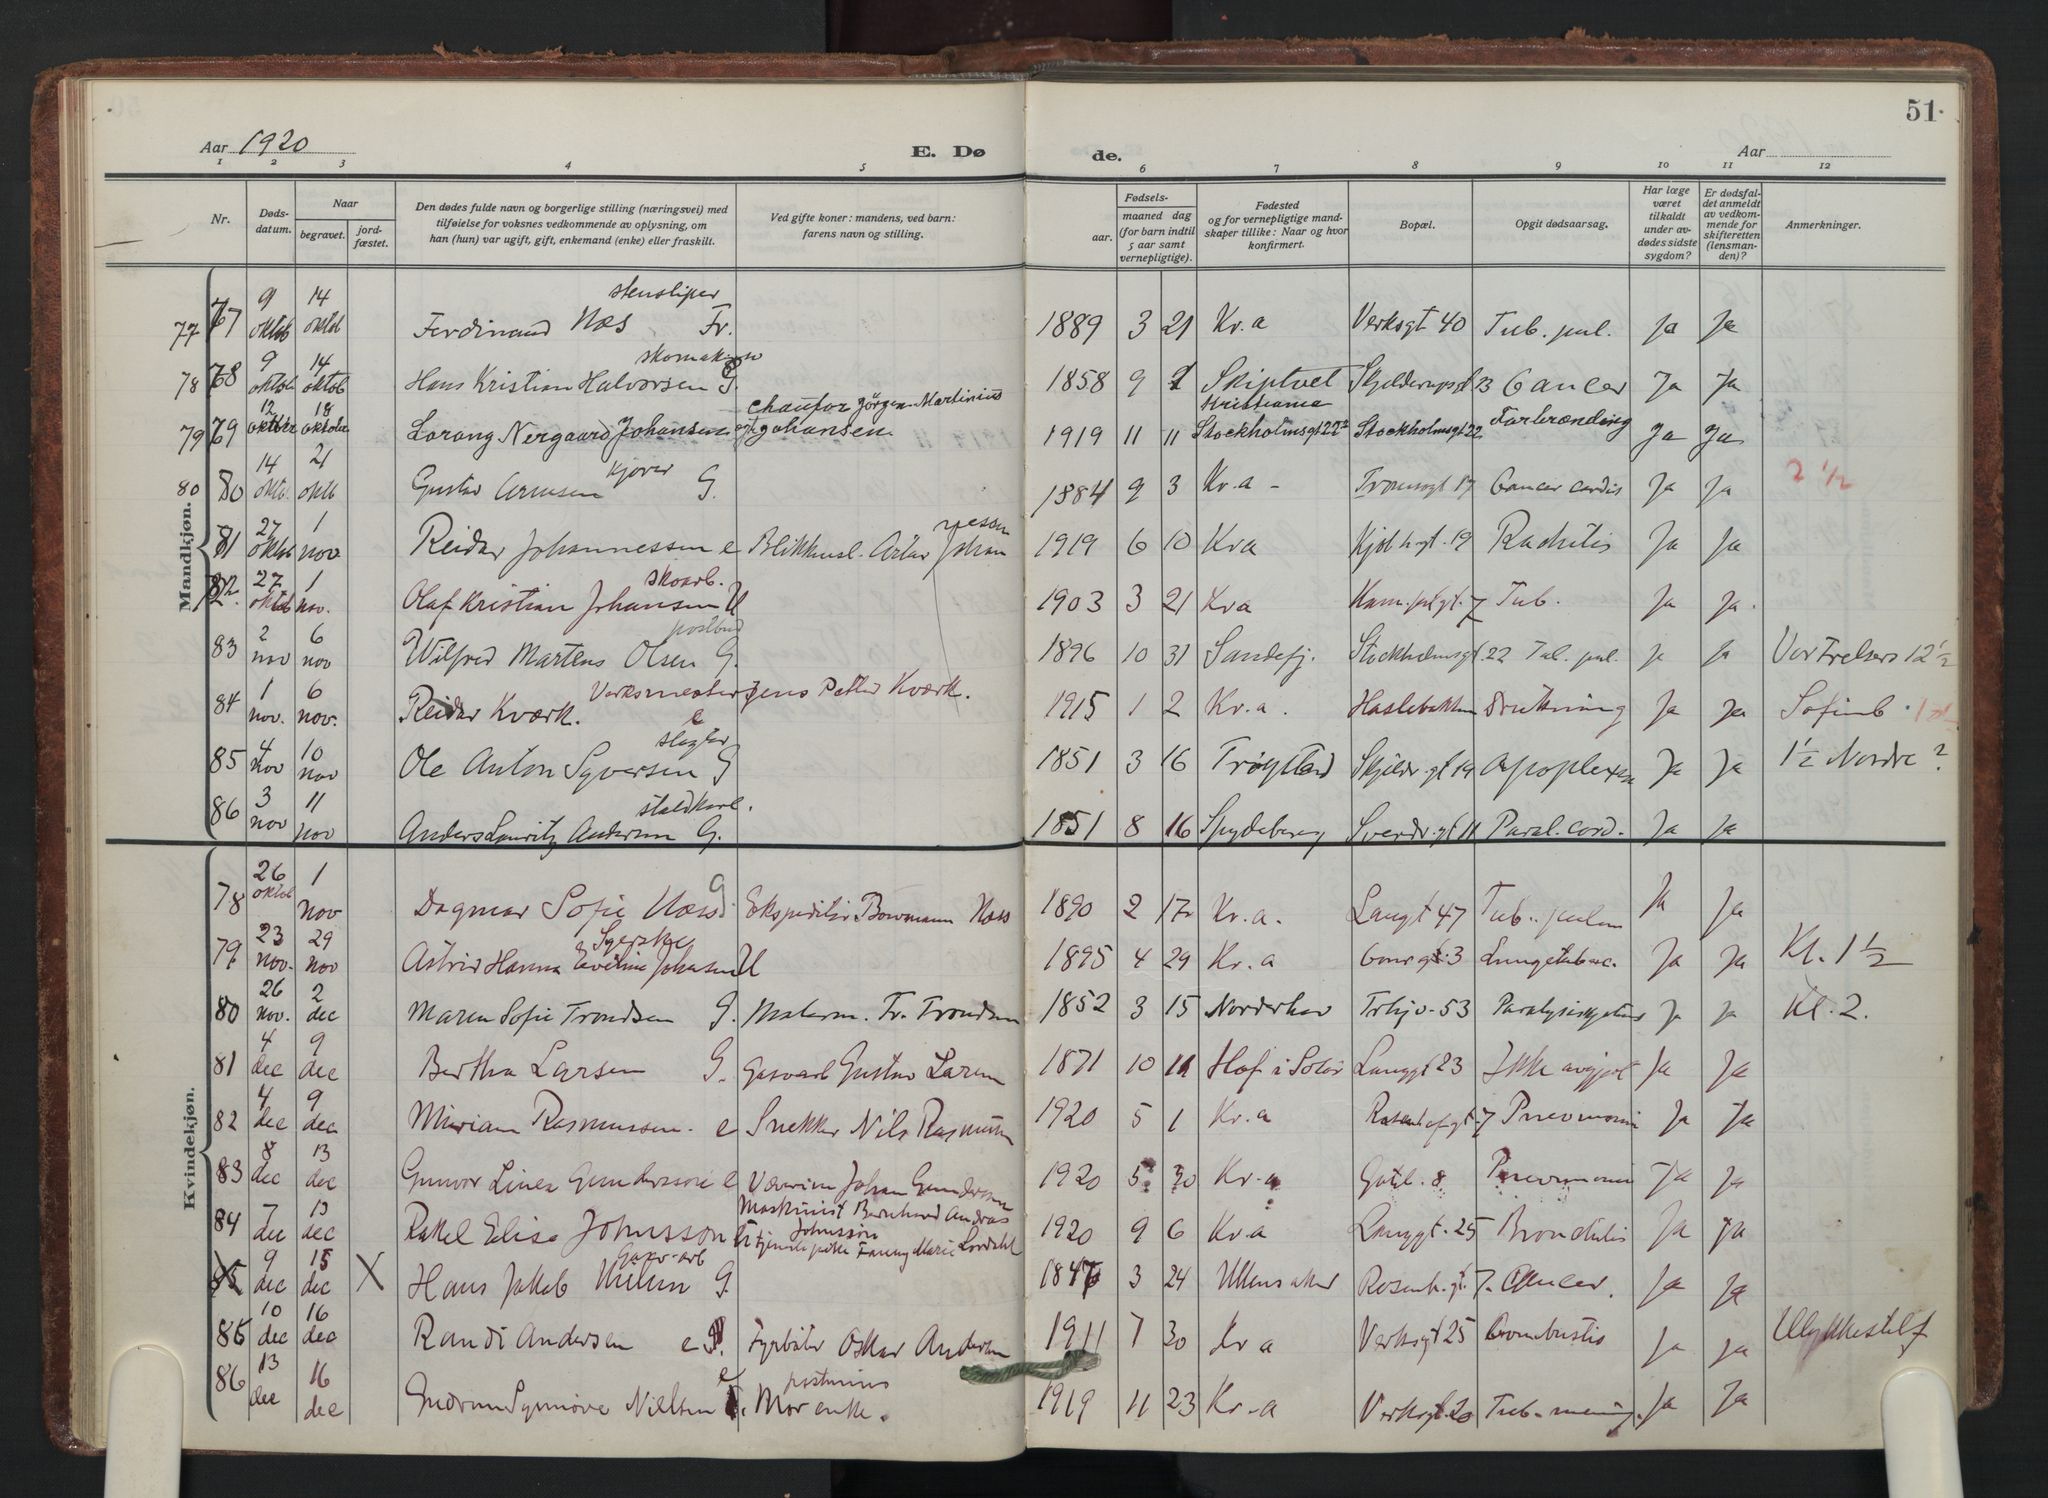 51.
Aar 1920 E. Døde. Aar
1 2 3 4 5 6 7 8 9 10 11 12
Nr. Døds-datum. Naar begravet. jord-fæstet. Den dødes fulde navn og borgerlige stilling (næringsvei) med tilføielse for voksnes vedkommende av oplysning, om han (hun) var ugift, gift, enkemand (enke) eller fraskilt. Ved gifte koner: mandens, ved barn: farens navn og stilling. Fødsels- aar. maaned dag (for barn indtil 5 aar samt vernepligtige). Fødested og for vernepligtige mandskaper tillike: Naar og hvor konfirmert. Bopæl. Opgit dødsaarsag. Har læge været tilkaldt under avdødes sidste sygdom? Er dødsfaldet anmeldt av vedkommende for skifteretten (lensmanden)? Anmerkninger.
Mandkjøn.
77 67 9 oktob 14 oktob Ferdinand Næs stensliper Fr. 1889 3 21 Kr.a Verksgt 40 Tub. pul. Ja Ja
78 68 9 oktob 14 oktob Hans Kristian Halvorsen skomaker G. 1858 9 Skiptvet 23 Cancer Ja Ja
79 69 12 oktober 18 oktober Lorang Nergaard Johansen chaufør Jörgen Martinius Johansen 1919 11 11 Kristiania Stockholmsgt 22 Stockholmsgt 22 Forbrænding Ja Ja
80 80 14 oktb. 21 oktb Gustav kjører G. 1884 9 3 Kr.a - Tromsogt 17 Cancer cardis Ja Ja 2 1/2
81 27 oktob 1 nov. Reidar Johannessen e Blikkensl. Artur Johannesen 1919 6 10 Kra 19 Rachitis Ja Ja
82. 27 oktob 1 nov. Olaf Kristian Johansen skoarb. U 1903 3 21 Kra 7 Tub. Ja Ja.
83 2 nov 6 nov Wilfred Martens Olsen postbud G. 1896 10 31 Sandefj. Stockholmsgt. 22 Tub. pul. Ja Ja Vor Frelsers 12 1/2
84 1 nov. 6 nov. Reidar Kværk. e Verksmester Jens Petter Kværk. 1915 1 2 Kr.a. Haslebakken Drukning Ja Ja Sofienb.
85 4 nov 10 nov Ole Anton Syversen slagter G 1851 3 16 Trøgstad Skjelder.gt 19 Apoplexia Ja Ja 1 1/2 Nordre?
86 3 nov 11 nov Anders Lauritz Andersen staldkarl. G. 1851 8 16 Spydeberg Sverdr.gt 11 Paral. cord. Ja Ja
Kvindekjøn.
78 26 oktob 1 nov Dagmar Sofie Næss G Ekspeditør Bowmann Næss 1890 2 17 Kr.a. Langgt 47 Tub. pulm Ja Ja
79 23 nov. 29 nov Astrid Hanna Eveline Johansen Syerske U 1895 4 29 Kr.a 3 Lungetuberc. Ja Ja Kl. 1 1/2
80 26 nov. 2 dec Maren Sofie Trondsen G. Malerm. Fr. Trondsen 1852 3 15 Norderhov Trhjv. 53 Ja Ja Kl. 2.
81 4 dec 9 dec Bertha Larsen G. Gasverk Gustav Larsen 1871 10 11 Hof i Solør Langgt 23 Ikke avgjort Ja Ja
82 4 dec 9 dec Miriam Rasmussen. e Snekker Nils Rasmussen 1920 5 1 Kr.a 7 Pneumoni Ja Ja
83 8 dec 13 dec Gunvor Linea Gundersen e Johan Gundersen 1920 5 30 Kr.a 8 Pneumoni Ja Ja
84 7 dec 13 dec Rakel Elise Johnsson Maskinist Bernhard Andreas Johnsson Tjenestepike Fanny Marie Lordahl 1920 9 6 Kr.a Langgt. 25 Bronchitis Ja Ja
85 9 dec 15 dec X Hans Jakob Gasv-arb G. 1847 3 24 Ullensaker Rosenh.gt. 7. Cancer. Ja Ja
85 10 dec 16 dec Randi Andersen e Fyrbøter Oskar Andersen 1911 7 30 Kr a Verksgt 25 Combustio Ja Ja Ulykkestilf
86 13 dec 16 dec Gudrun Synnøve Nielsen e postnius Mor enke. 1919 11 23 Kr.a Verksgt. 20 Tub. mening. Ja Ja